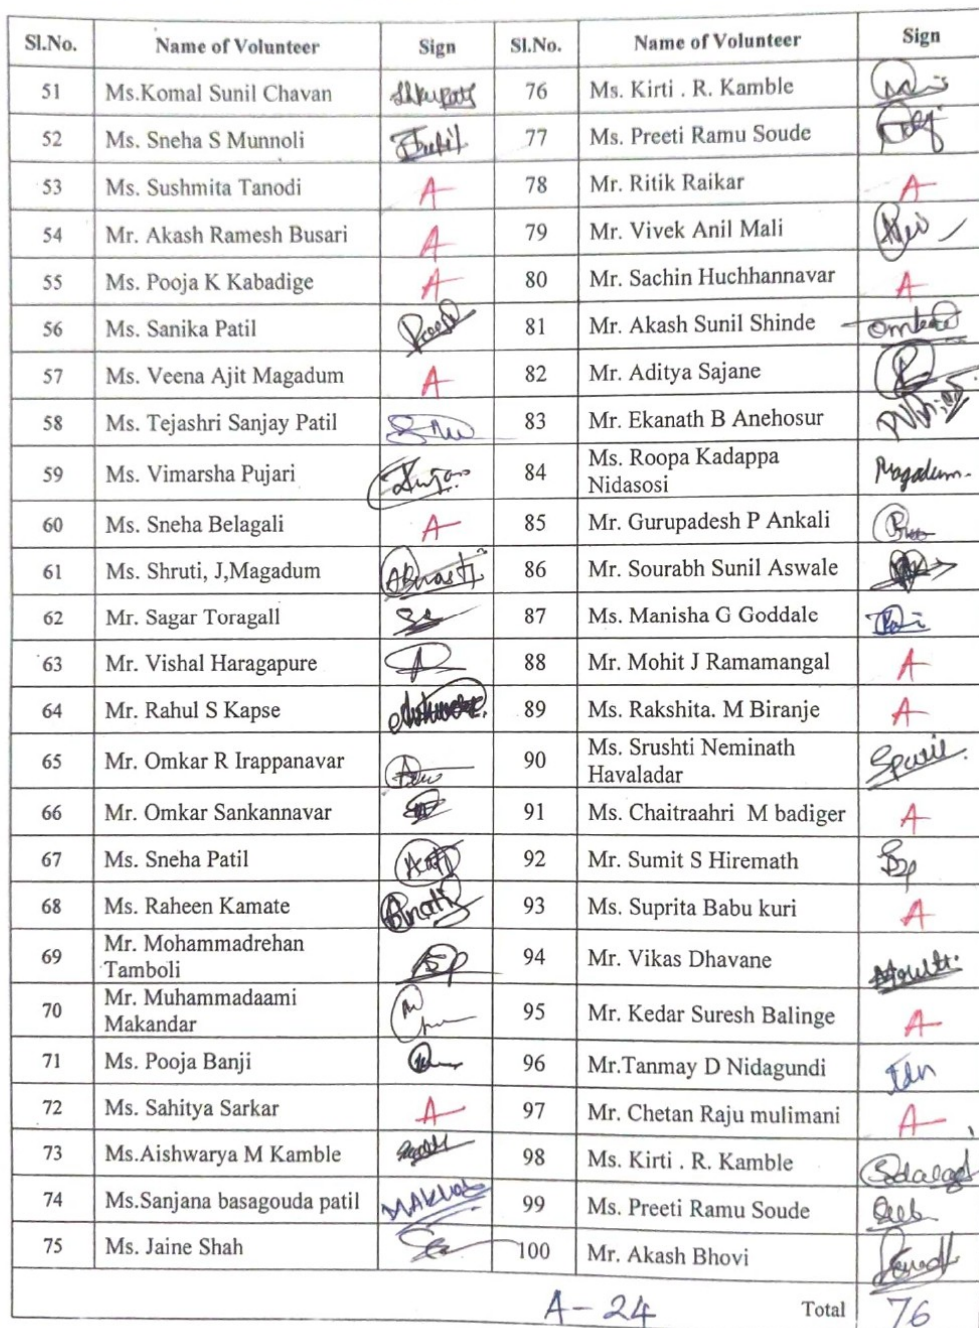 Sl.No. Name of Volunteer Sign Sl.No. Name of Volunteer Sign
51 Ms.Komal Sunil Chavan 76 Ms. Kirti . R. Kamble
52 Ms. Sneha S Munnoli 77 Ms. Preeti Ramu Soude
53 Ms. Sushmita Tanodi A 78 Mr. Ritik Raikar A
54 Mr. Akash Ramesh Busari A 79 Mr. Vivek Anil Mali
55 Ms. Pooja K Kabadige A 80 Mr. Sachin Huchhannavar A
56 Ms. Sanika Patil 81 Mr. Akash Sunil Shinde
57 Ms. Veena Ajit Magadum A 82 Mr. Aditya Sajane
58 Ms. Tejashri Sanjay Patil 83 Mr. Ekanath B Anehosur
59 Ms. Vimarsha Pujari 84 Ms. Roopa Kadappa
Nidasosi Magadum.
60 Ms. Sneha Belagali A 85 Mr. Gurupadesh P Ankali
61 Ms. Shruti, J,Magadum 86 Mr. Sourabh Sunil Aswale
62 Mr. Sagar Toragall 87 Ms. Manisha G Goddale
63 Mr. Vishal Haragapure 88 Mr. Mohit J Ramamangal A
64 Mr. Rahul S Kapse 89 Ms. Rakshita. M Biranje A
65 Mr. Omkar R Irappanavar 90 Ms. Srushti Neminath
Havaladar
66 Mr. Omkar Sankannavar 91 Ms. Chaitraahri M badiger A
67 Ms. Sneha Patil 92 Mr. Sumit S Hiremath
68 Ms. Raheen Kamate 93 Ms. Suprita Babu kuri A
69 Mr. Mohammadrehan
Tamboli 94 Mr. Vikas Dhavane
70 Mr. Muhammadaami
Makandar 95 Mr. Kedar Suresh Balinge A
71 Ms. Pooja Banji 96 Mr.Tanmay D Nidagundi Tan
72 Ms. Sahitya Sarkar A 97 Mr. Chetan Raju mulimani A
73 Ms.Aishwarya M Kamble 98 Ms. Kirti . R. Kamble
74 Ms.Sanjana basagouda patil 99 Ms. Preeti Ramu Soude
75 Ms. Jaine Shah 100 Mr. Akash Bhovi
A - 24 Total 76